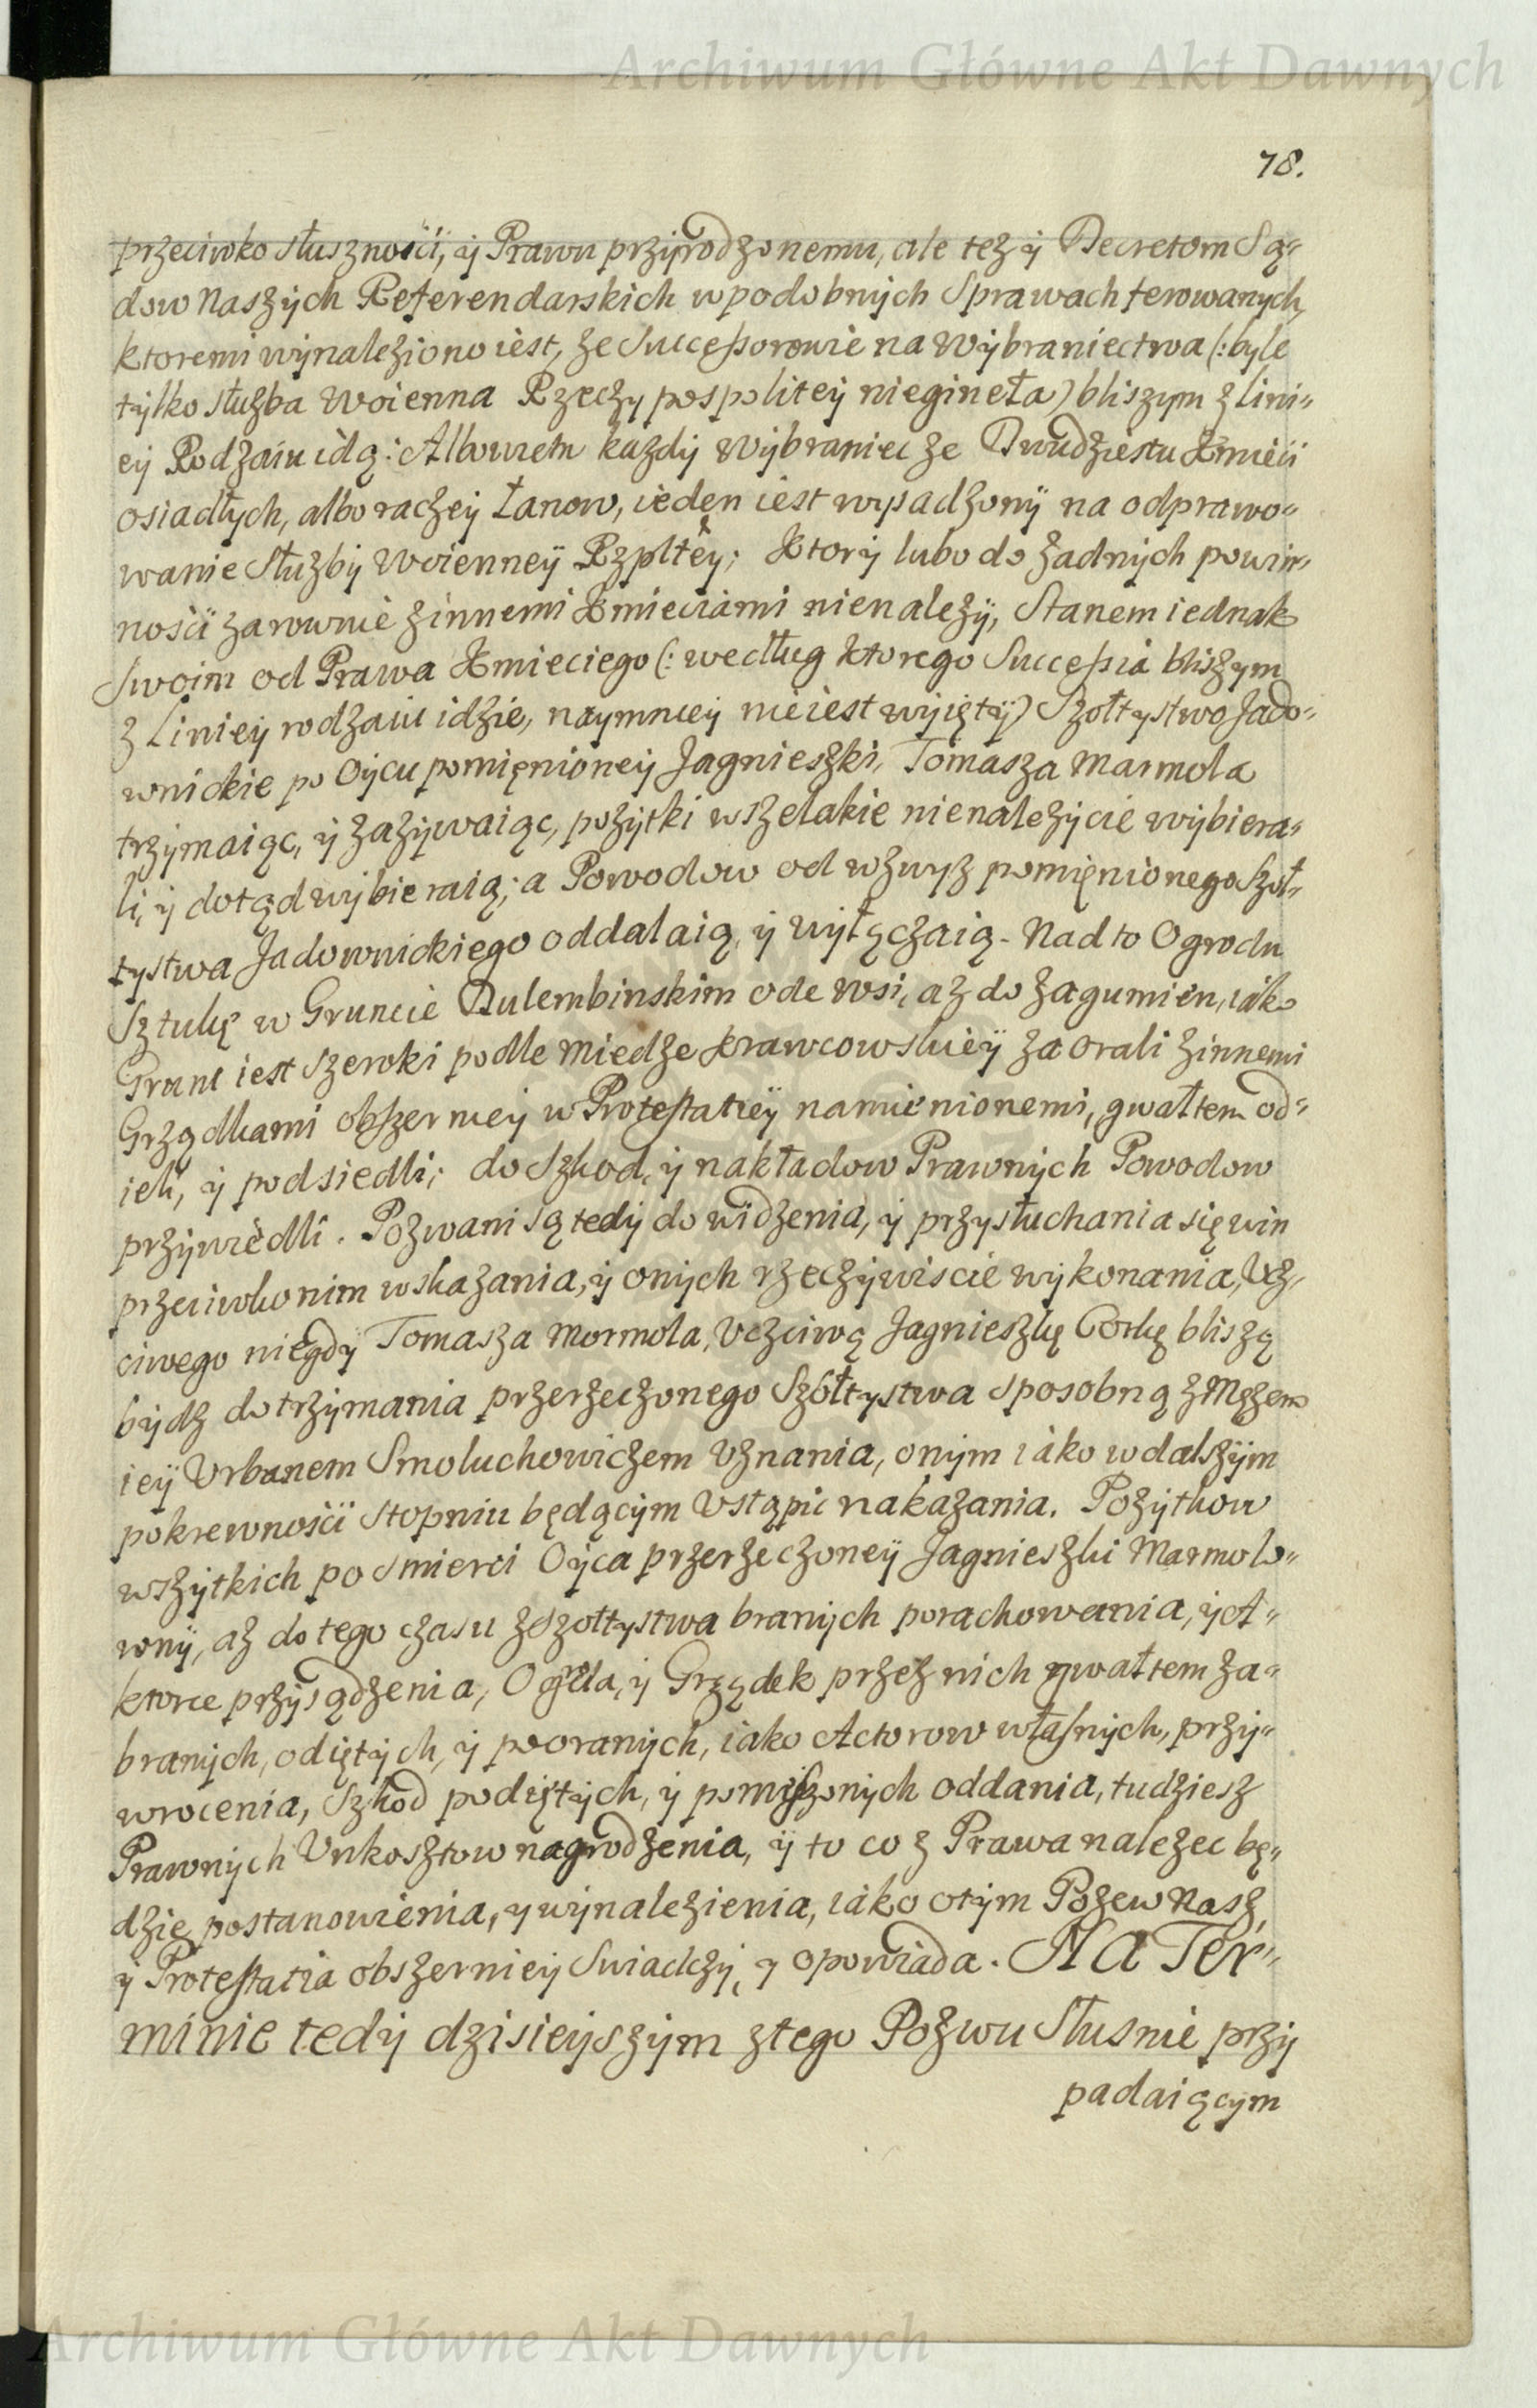 Archiwum Główne Akt Dawnych
78.
przeciwko słusznośći, ÿ Prawu przÿrodzonemu, ale też ÿ Decretom Są-
dow Naszÿch Referendarskich w podobnÿch Sprawach ferowanych,
ktoremi wÿnaleziono iest, że Succeßorowie na Wÿbraniectwa (: byle
tÿlko służba Woienna Rzeczy pospolitey nieginęła) bliszym z lini-
eÿ Rodzaiu idą: Albowiem każdÿ Wÿbraniec ze Dwudziestu Kmieći
osiadłych, albo raczeÿ Łanow, ieden iest wysadzonÿ na odprawo-
wanie Służbÿ Woienneÿ Rzpltey; Ktorÿ lubo do żadnÿch powin-
nośći zarownie z innemi Kmieciami nienależÿ, Stanem iednak
Swoim od Prawa Kmieciego (: według ktorego Succeßia bliszym
z Linieÿ rodzaiu idzie, naymnieÿ nieiest wÿiętÿ) Szołtystwo Jado-
wnickie po Oÿcu pomięnioneÿ Jagnieszki, Tomasza Marmola
trzÿmaiąc, ÿ zażÿwaiąc, pożÿtki wszelakie nienależÿcie wÿbiera-
li, ÿ dotąd wÿbieraią; a Powodow od wzwyż pomięnionego Szoł-
tystwa Jadownickiego oddalaią, ÿ wÿłączaią. Nad to Ogrodu
Sztukę w Gruncie Dulembinskim ode wsi, aż do zagumien, iako
Grunt iest szeroki podle miedze Krawcowskieÿ zaorali z innemi
Grządkami obszernieÿ w Protestatieÿ namienionemi, gwałtem od-
ieli, ÿ podsiedli; do Szkod, ÿ nakładow Prawnÿch Powodow
przÿwiedli. Pozwani są tedÿ do widzenia, ÿ przysłuchania się win
przeciwko nim wskazania, ÿ onÿch rzeczÿwiscie wÿkonania, Ucz-
ciwego niegdÿ Tomasza Mormola, Uczciwą Jagnieszkę Corkę bliszą
bÿdz do trzÿmania przerzeczonego Szołtystwa sposobną z Mężem
ieÿ Urbanem Smoluchowiczem Uznania, onÿm iako w dalszÿm
pokrewnośći Stopniu będącÿm Ustąpic nakazania. Pożÿtkow
wszÿtkich po smierci Oÿca przerzeczoneÿ Jagnieszki Marmolo-
wnÿ, aż do tego czasu z Szołtystwa branÿch porachowania, ÿ A-
ktorce przÿsądzenia, Ogrła, ÿ Grządek przez nich gwałtem za-
branÿch, odiętÿch, ÿ pooranÿch, iako Actorow własnÿch, przÿ-
wrocenia, Szkod podiętÿch, ÿ oddania, tudziesz
Prawnÿch Unkosztow nagrodzenia, ÿ to co z Prawa należec bę-
dzie postanowienia, y wÿnalezienia, iako o tÿm Pozew Nasz,
ÿ Protestatia obszernieÿ Swiadczÿ, y opowiada. NA Ter-
minie tedÿ dzisieÿszÿm z tego Pozwu Słusnie przÿ
padaiącym
Archiwum Główne Akt Dawnych